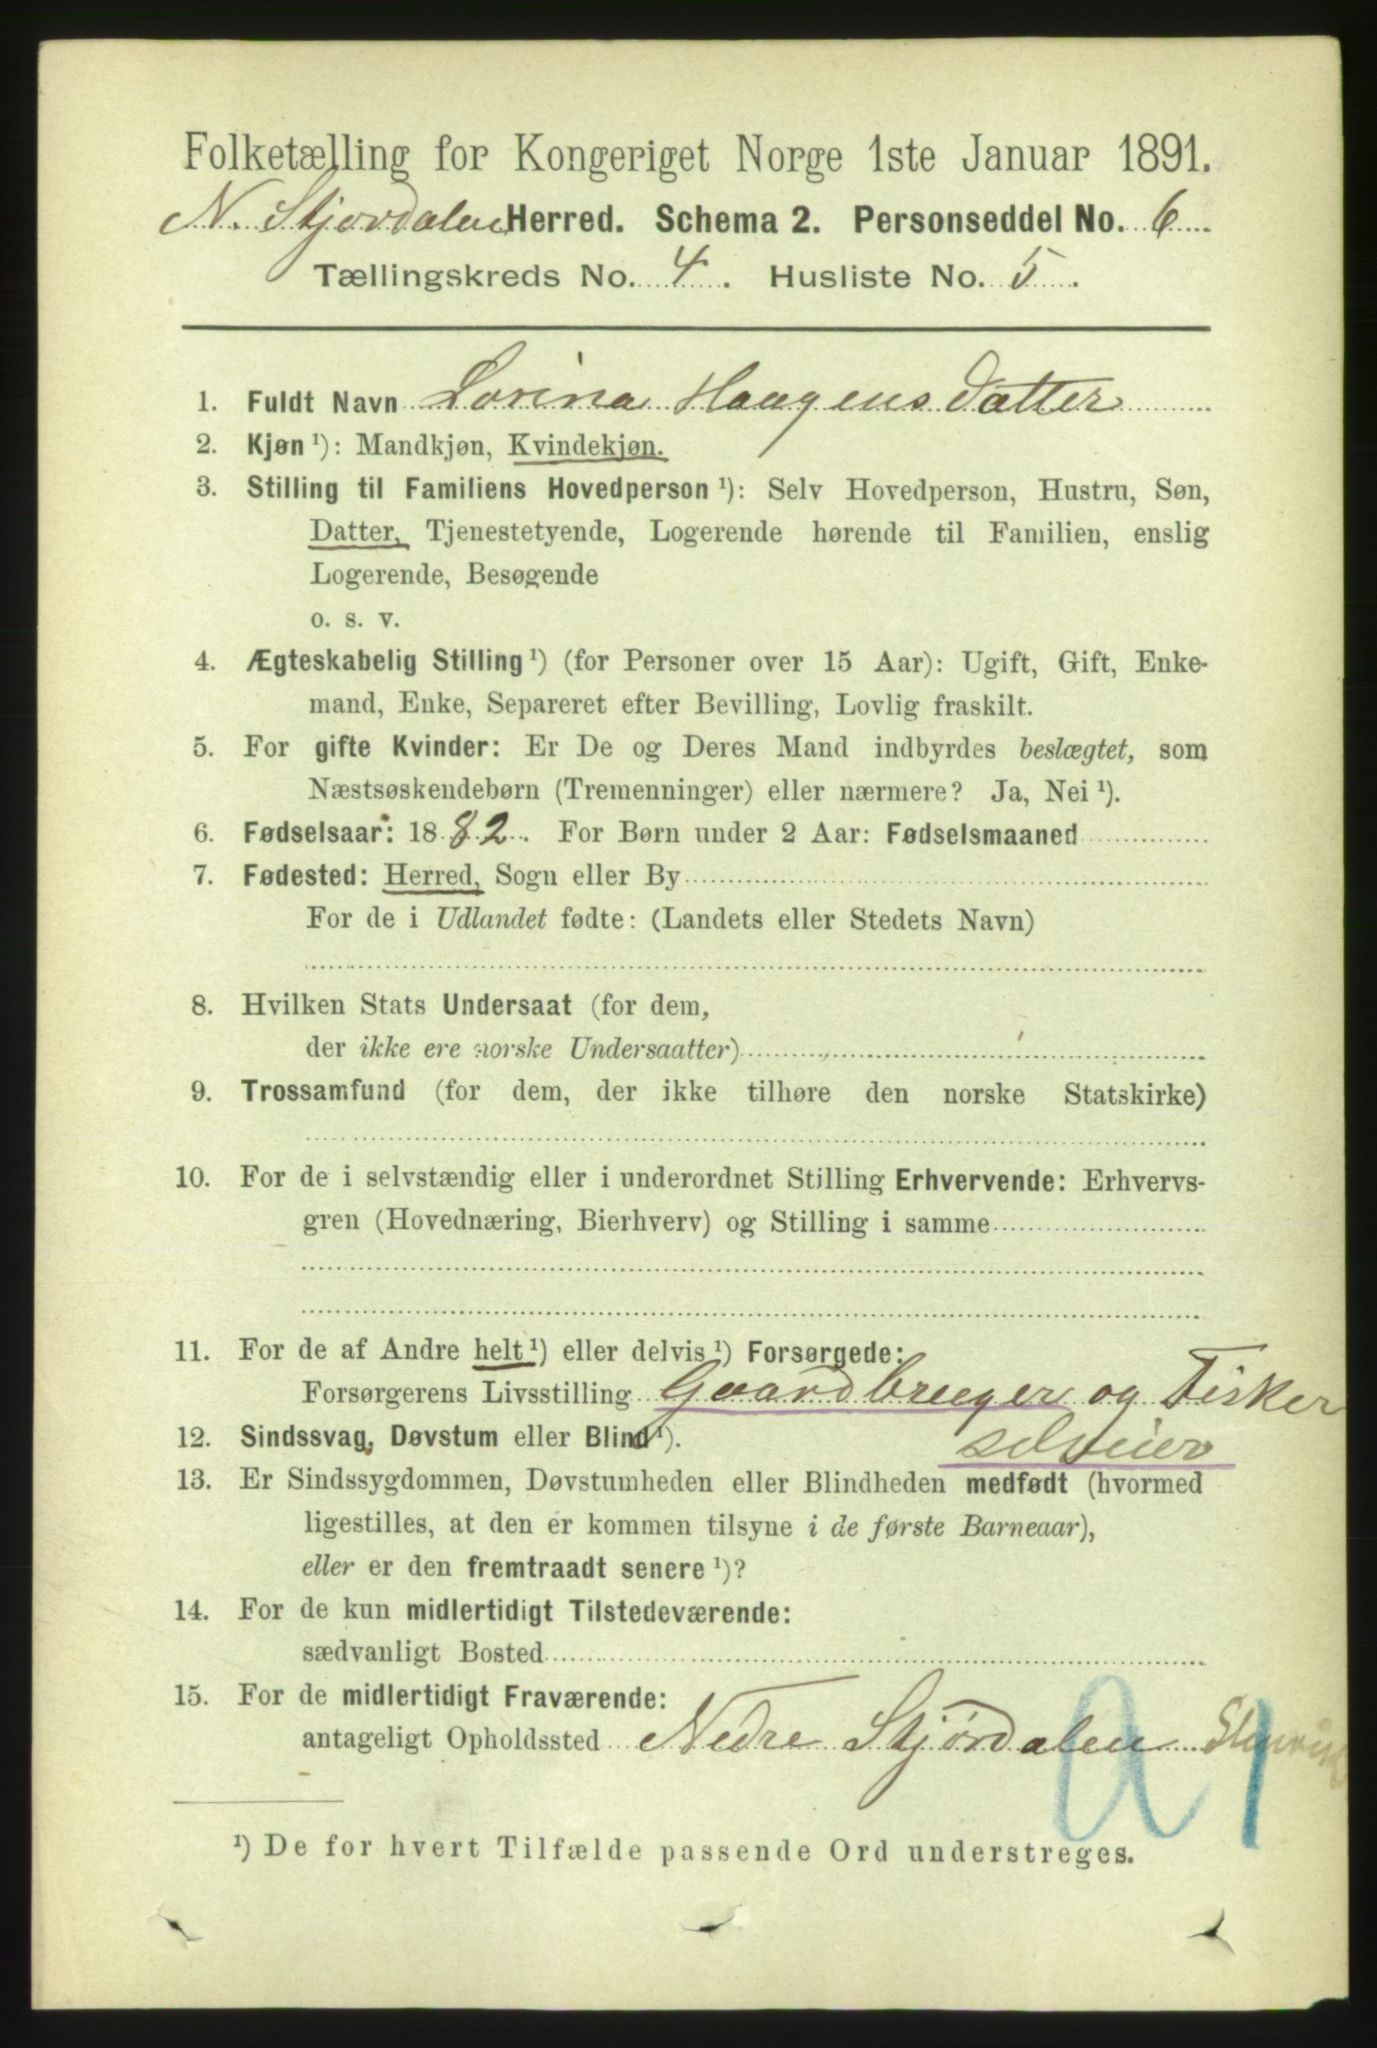 Folketælling for Kongeriget Norge 1ste Januar 1891.
N. Stjordalen Herred. Schema 2. Personseddel No. 6
Tællingskreds No. 4. Husliste No. 5.
1. Fuldt Navn Lorina Haagens datter
2. Kjøn ¹): Mandkjøn, Kvindekjøn.
3. Stilling til Familiens Hovedperson ¹): Selv Hovedperson, Hustru, Søn,
Datter, Tjenestetyende, Logerende hørende til Familien, enslig
Logerende, Besøgende
o. s. v.
4. Ægteskabelig Stilling ¹) (for Personer over 15 Aar): Ugift, Gift, Enke-
mand, Enke, Separeret efter Bevilling, Lovlig fraskilt.
5. For gifte Kvinder: Er De og Deres Mand indbyrdes beslægtet, som
Næstsøskendebørn (Tremenninger) eller nærmere? Ja, Nei ¹).
6. Fødselsaar: 1882. For Børn under 2 Aar: Fødselsmaaned
7. Fødested: Herred, Sogn eller By
For de i Udlandet fødte: (Landets eller Stedets Navn)
8. Hvilken Stats Undersaat (for dem,
der ikke ere norske Undersaatter)
9. Trossamfund (for dem, der ikke tilhøre den norske Statskirke)
10. For de i selvstændig eller i underordnet Stilling Erhvervende: Erhvervs-
gren (Hovednæring, Bierhverv) og Stilling i samme
11. For de af Andre helt ¹) eller delvis ¹) Forsørgede:
Forsørgerens Livsstilling Gaardbruger og Fisker
12. Sindssvag, Døvstum eller Blind ¹). selveier
13. Er Sindssygdommen, Døvstumheden eller Blindheden medfødt (hvormed
ligestilles, at den er kommen tilsyne i de første Barneaar),
eller er den fremtraadt senere ¹)?
14. For de kun midlertidigt Tilstedeværende:
sædvanligt Bosted
15. For de midlertidigt Fraværende:
antageligt Opholdssted Nedre Stjørdalen
¹) De for hvert Tilfælde passende Ord understreges.